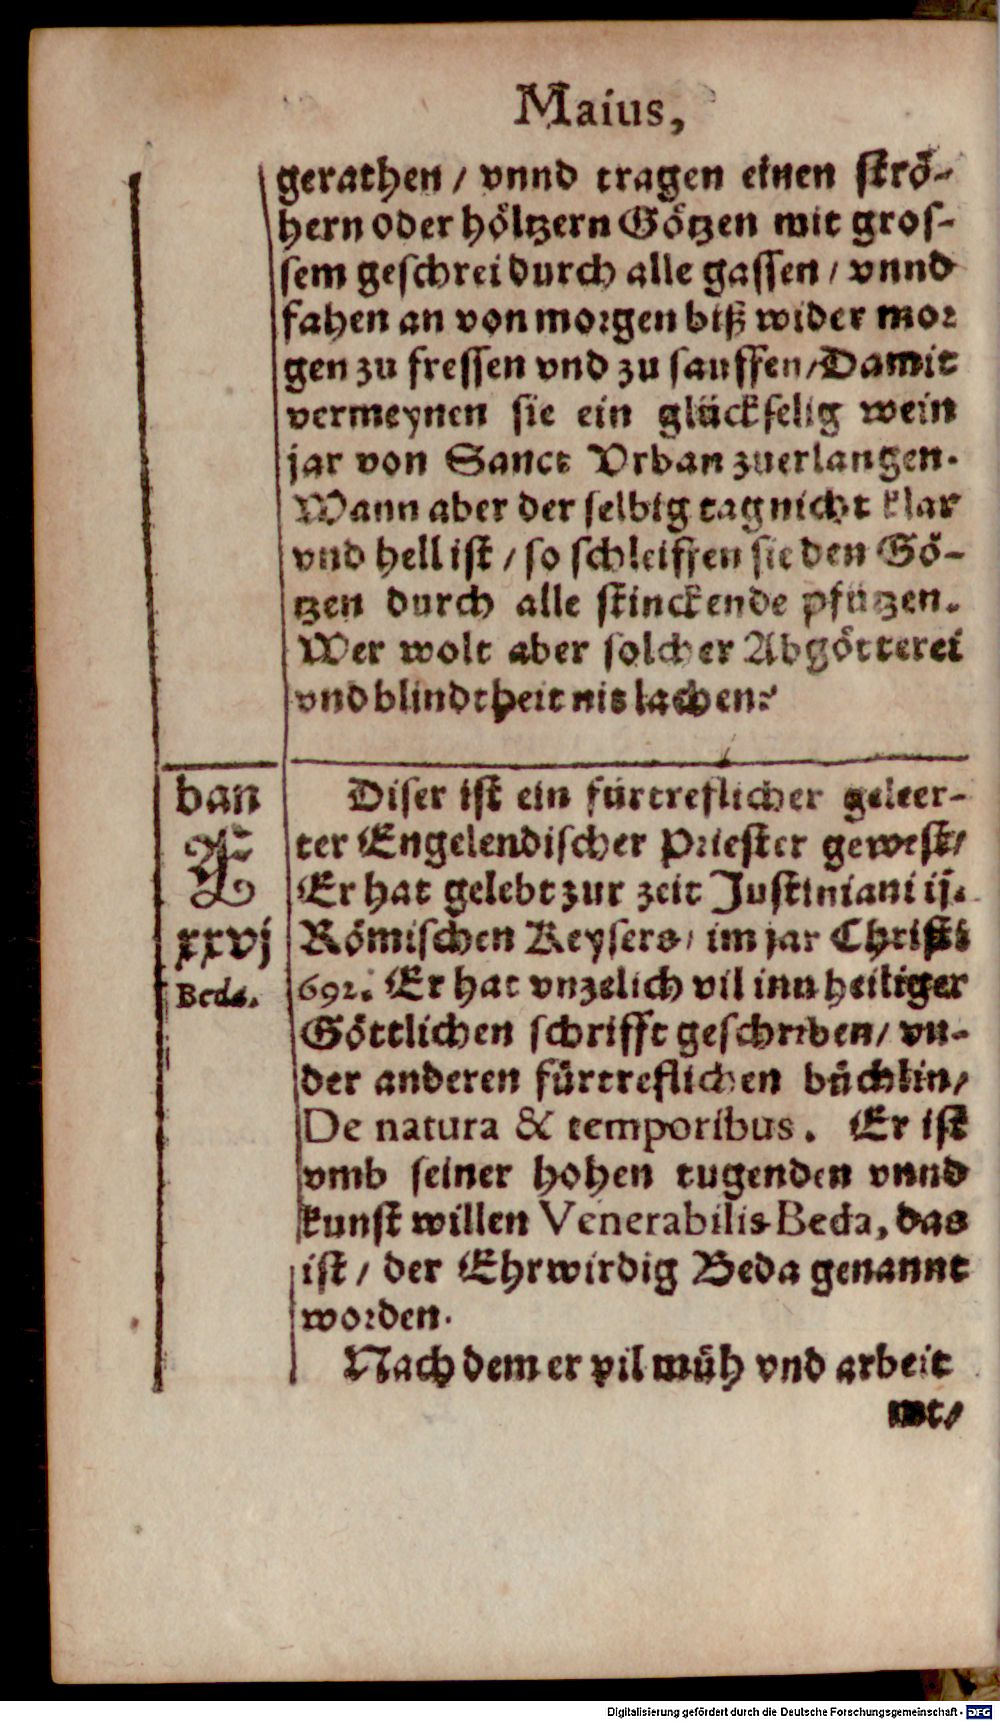 Maius,
gerathen / vnnd tragen einen strö-
hern oder höltzern Götzen mit gros-
sem geschrei durch alle gassen / vnnd
fahen an von morgen biß wider mor
gen zu fressen vnd zu sauffen / Damit
vermeynen sie ein glückselig wein
jar von Sanct Vrban zuerlangen.
Wann aber der selbig tag nicht klar
vnd hell ist / so schleiffen sie den Gö-
tzen durch alle stinckende pfützen.
Wer wolt aber solcher Abgötterei
vnd blindtheit nit lachen?
ban
F
xxvj
Beda.
Diser ist ein fürtreflicher geleer-
ter Engelendischer Priester gewest /
Er hat gelebt zur zeit Justiniani ij.
Römischen Keysers / im jar Christi
692. Er hat vnzelich vil inn heiliger
Göttlichen schrifft geschriben / vn-
der anderen fürtreflichen büchlin /
De natura & temporibus. Er ist
vmb seiner hohen tugenden vnnd
kunst willen Venerabilis Beda, das
ist / der Ehrwirdig Beda genannt
worden.
Nach dem er vil müh vnd arbeit
mt /
Digitalisierung gefördert durch die Deutsche Forschungsgemeinschaft - DFG